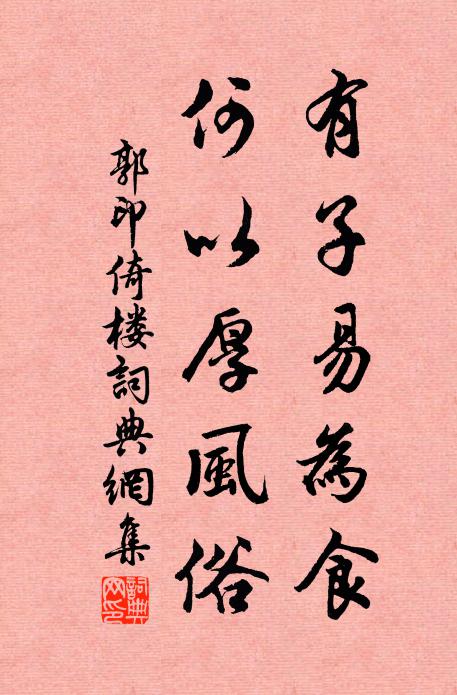 有子易為食
何以厚風俗
郭印倚楼詞典網集
詞典網印